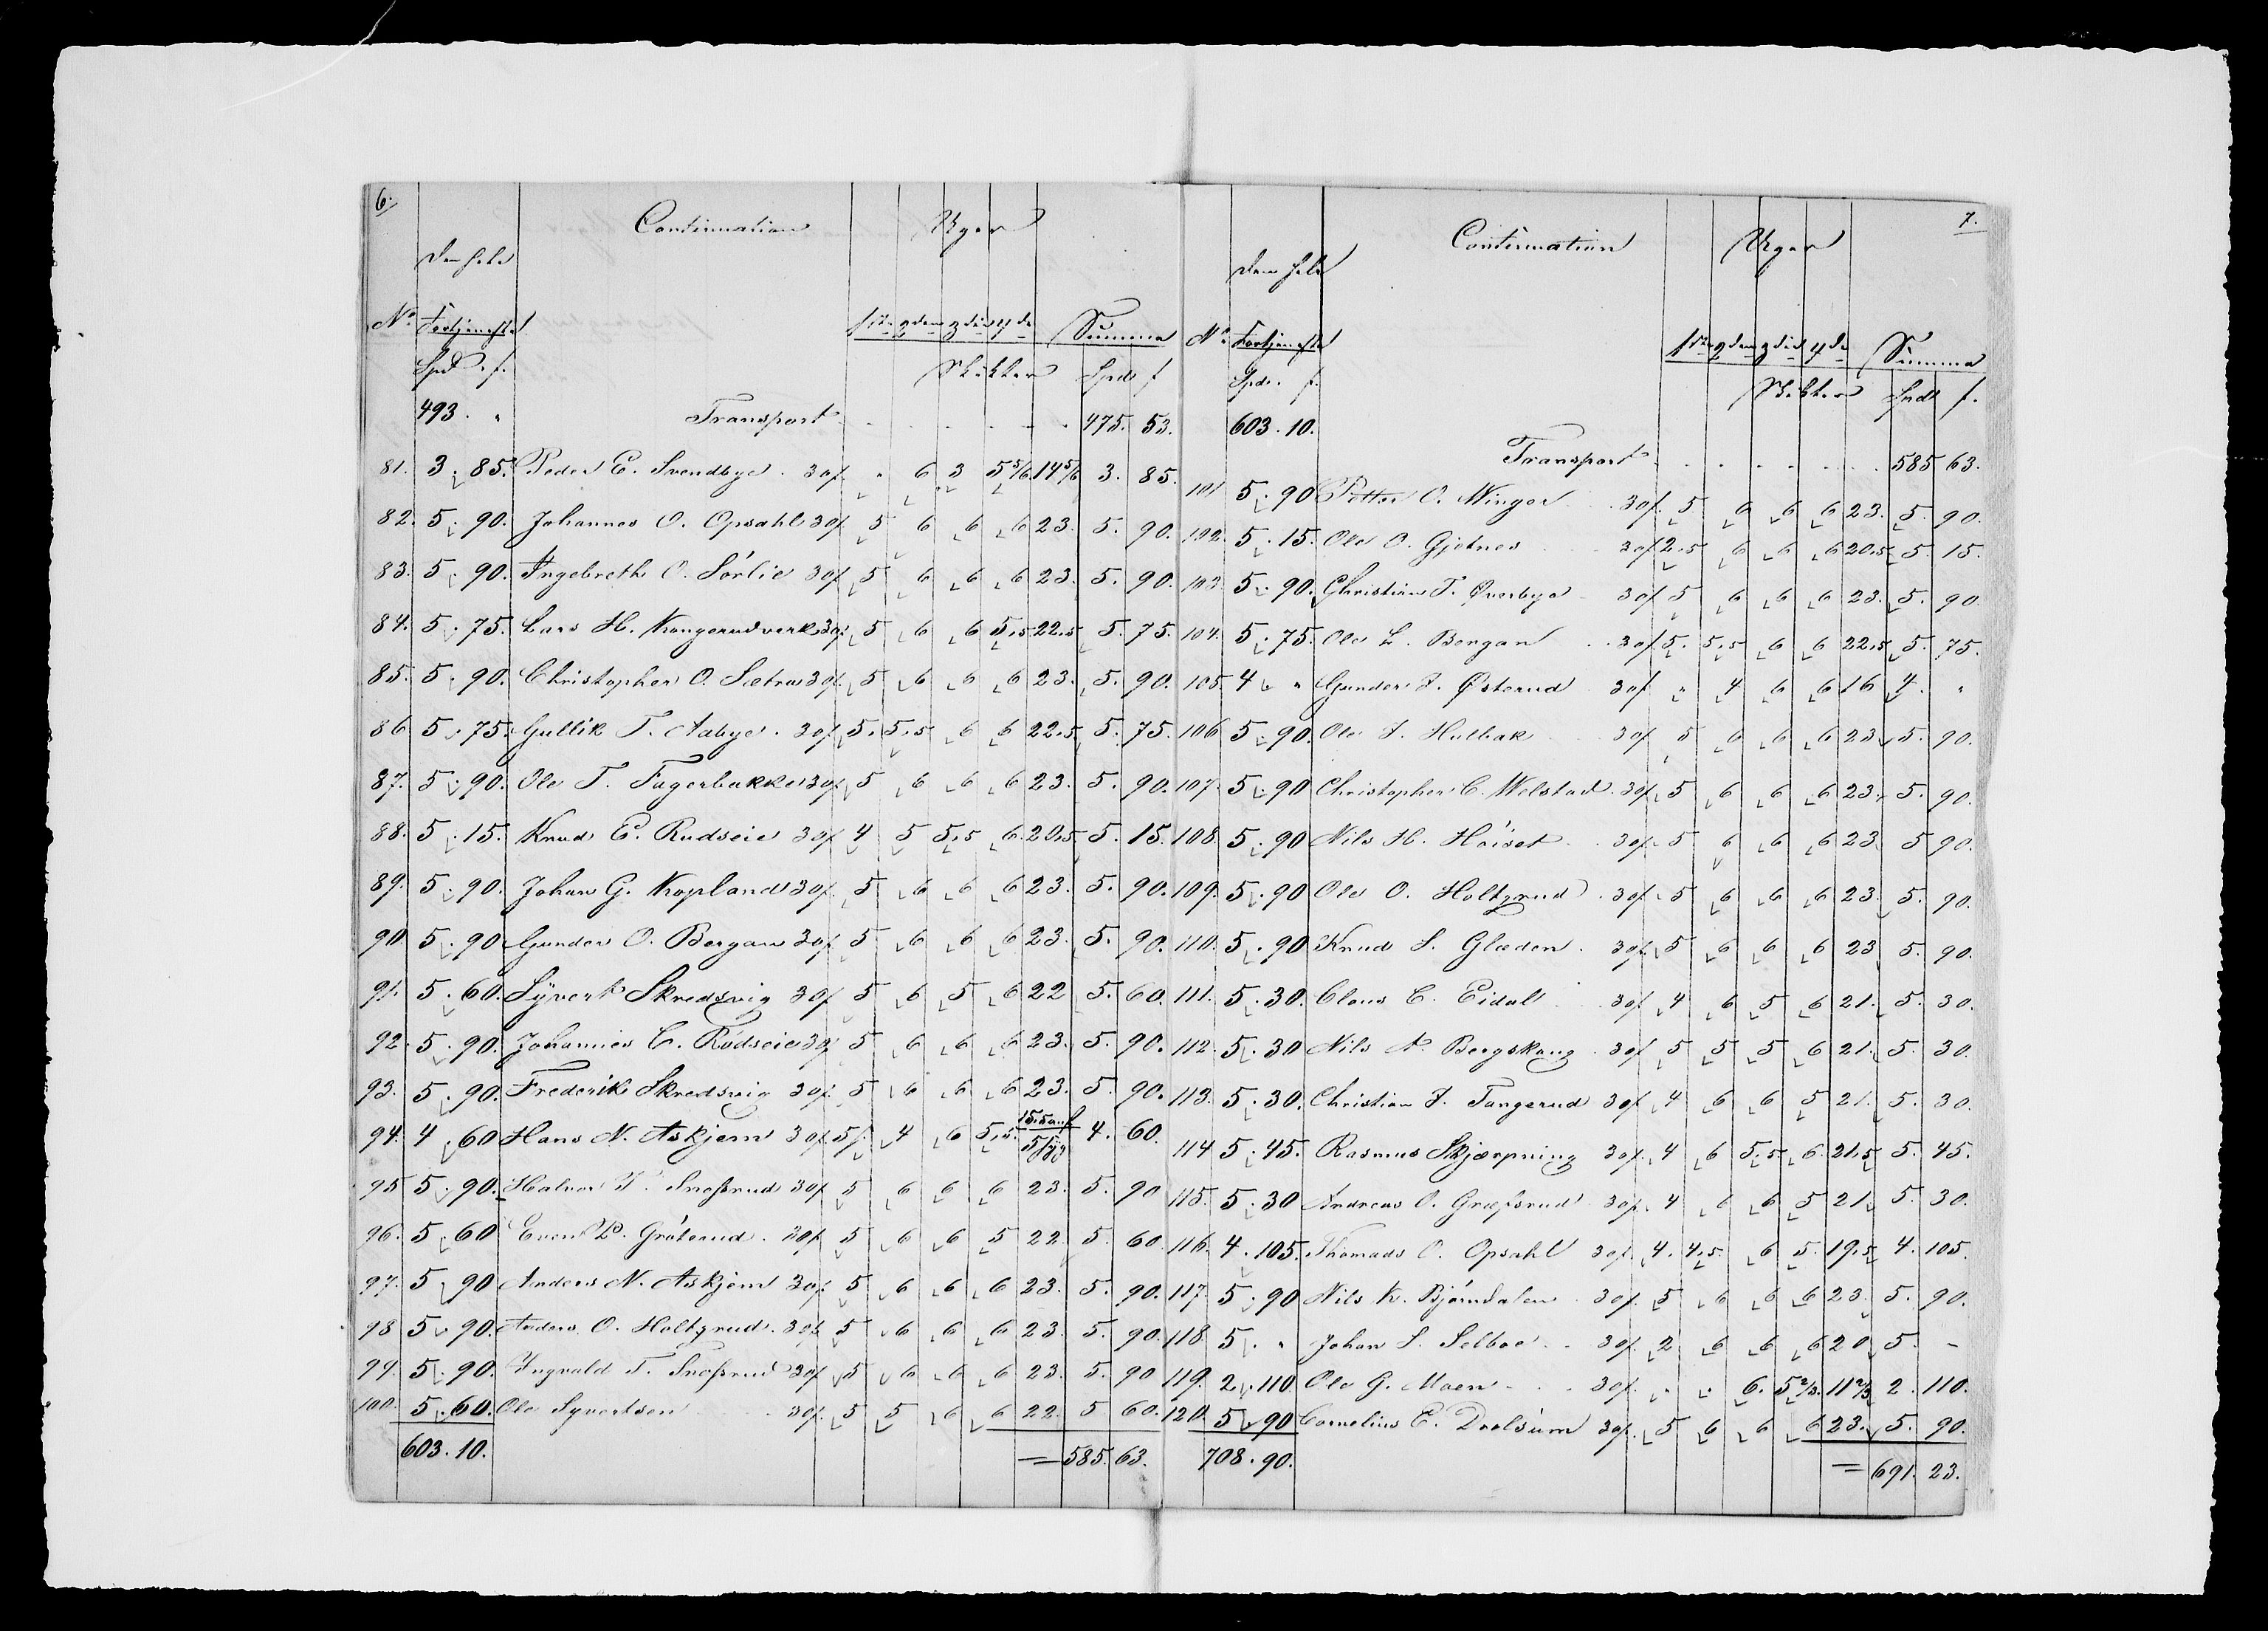 6.
Continuation
Uger
den hele
No. Fortjeneste 1ste 2den 3die 4de Summa
Spd. ß. Skikter Spd ß
493. " Transport 475. 53.
81. 3. 85. Peder E. Svendbye 30ß " 6 3 5 5/6 14 5/6 3. 85.
82. 5. 90. Johannes O. Opsahl 30ß 5 6 6 6 23. 5. 90.
83. 5. 90. Ingebreth O. Sörlie 30ß 5 6 6 6 23. 5. 90.
84. 5. 75. Lars H. Kongerudverk 30ß 5 6 6 5,5 22,5 5. 75.
85. 5. 90. Christopher O. Sætra 30ß 5 6 6 6 23. 5. 90.
86 5. 75. Gullik T. Aabye 30ß 5. 5,5 6 6 22,5 5. 75.
87. 5. 90. Ole T. Fagerbakke 30ß 5 6 6 6 23. 5. 90.
88. 5. 15. Knud E. Rudseie 30ß 4 5 5,5 6. 20,5 5. 15.
89. 5. 90. Johan G. Kopland 30ß 5 6 6 6 23. 5. 90.
90. 5. 90 Gunder O. Bergan 30ß 5 6 6 6 23. 5. 90.
91. 5. 60. Syvert Skredsvig 30ß 5 6 5 6 22 5. 60.
92. 5. 90. Johannes C. Rudseie 30ß 5 6 6 6 23. 5. 90.
93. 5. 90. Frederik Skredsvig 30ß 5 6 6 6 23. 5. 90.
94. 4. 60 Hans N. Askjem 30ß 5 4 6 5,5. 15,5 5 4. 60.
95 5. 90. Halvor T. Snefsrud 30ß 5 6 6 6 23. 5. 90
96. 5. 60 Even P. Gröterud 30ß 5 6 6 5 22. 5. 60.
97. 5. 90 Anders N. Askjem 30ß 5 6 6 6 23. 5. 90.
98 5. 90. Anders O. Holtgrud 30ß 5 6 6 6 23. 5. 90.
99. 5. 90. Ingvald T. Snefsrud 30ß 5 6 6 6 23. 5. 90
100. 5. 60. Ole Syvertsen 30ß 5 5 6 6 22. 5 60.
603. 10. = 585. 63.
7.
Continuation
Uger
den hele
No. Fortjeneste 1ste 2den 3die 4de Summa
Spd. ß. Skikter Spd ß.
603. 10.
Transport 585 63.
101 5. 90 Petter O. Winger 30ß. 5 6 6 6 23. 5. 90.
102. 5. 15. Ole O. Gjetnes 30ß 2,5 6 6 6 20,5 5. 15.
103. 5. 90. Christian T. Øverbye 30ß 5 6 6 6 23. 5. 90
104. 5. 75. Ole L. Bergan 30ß 5. 5,5 6 6 22,5 5. 75.
105. 4 " Gunder J. Østerud 30ß " 4 6 6 16 4. "
106 5. 90. Ole J. Hulbak 30ß 5 6 6 6 23 5. 90.
107. 5. 90 Christopher C. Welstad 30ß 5 6 6 6 23. 5. 90.
108. 5. 90 Nils H. Höiset 30ß 5 6 6 6 23. 5 90.
109. 5. 90 Ole O. Holtgrud 30ß 5 6 6 6 23. 5. 90.
110. 5. 90 Knud S. Glæden 30ß 5 6 6 6 23 5. 90.
111. 5. 30. Claus C. Eidal 30ß 4 6 5 6 21. 5. 30.
112. 5. 30 Nils A. Bergskaug 30ß 5 5 5 6 21. 5. 30.
113. 5. 30. Christian J. Tangerud 30ß 4 6 6 5 21. 5. 30.
114 5. 45. Rasmus Skjærpning 30ß 4 6 5,5 6 21,5 5. 45.
115. 5. 30 Andreas O. Græfsrud 30ß 4 6 6 5 21. 5. 30.
116. 4. 105. Thomads O. Opsahl 30ß 4. 4,5. 6 5. 19,5 4. 105.
117. 5. 90 Nils K. Björndalen 30ß. 5 6 6 6 23. 5. 90.
118. 5. " Johan S. Selboe 30ß. 2 6 6 6 20 5. -
119. 2. 110. Ole G. Moen 30ß. " " 6. 5 2/3. 11 2/3 2. 110.
120. 5. 90 Cornelius E. Drolsum 30ß. 5 6 6 6 23. 5. 90.
708. 90. = 691. 23.